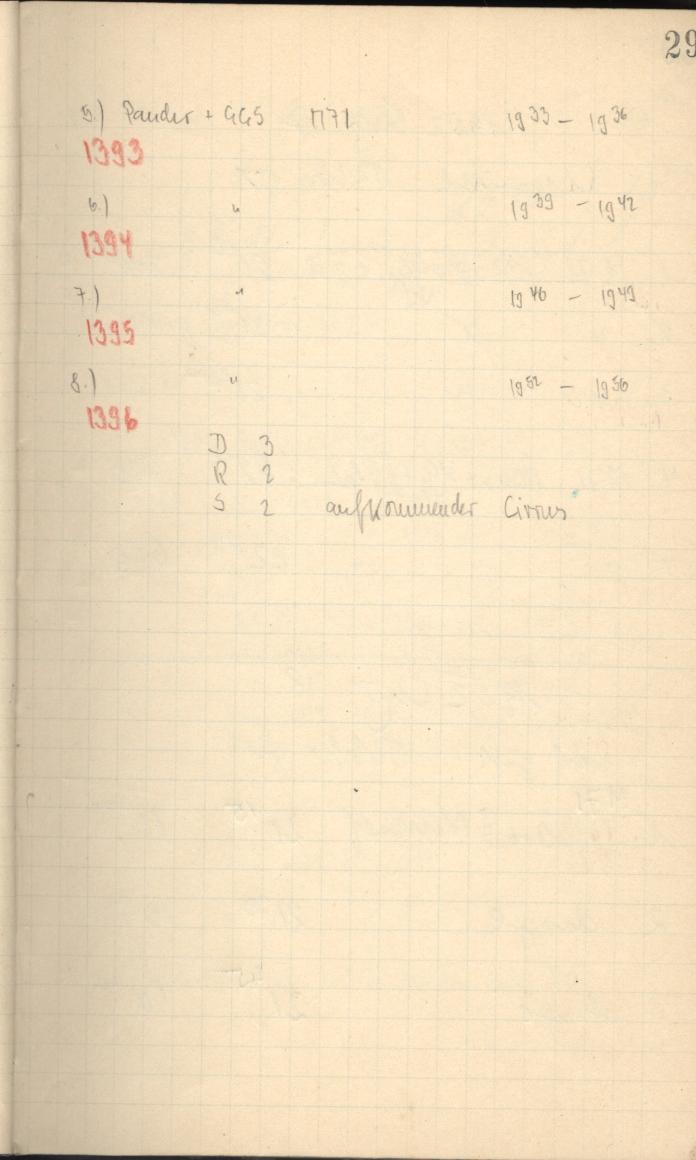 29
5.) Pander + GG5 M71 19 33 – 19 36
1393
6.) " 19 39 – 19 42
1394
7.) " 19 46 – 19 49
1395
8.) " 19 52 – 19 56
1396
D 3
R 2
S 2 aufkommender Cirrus